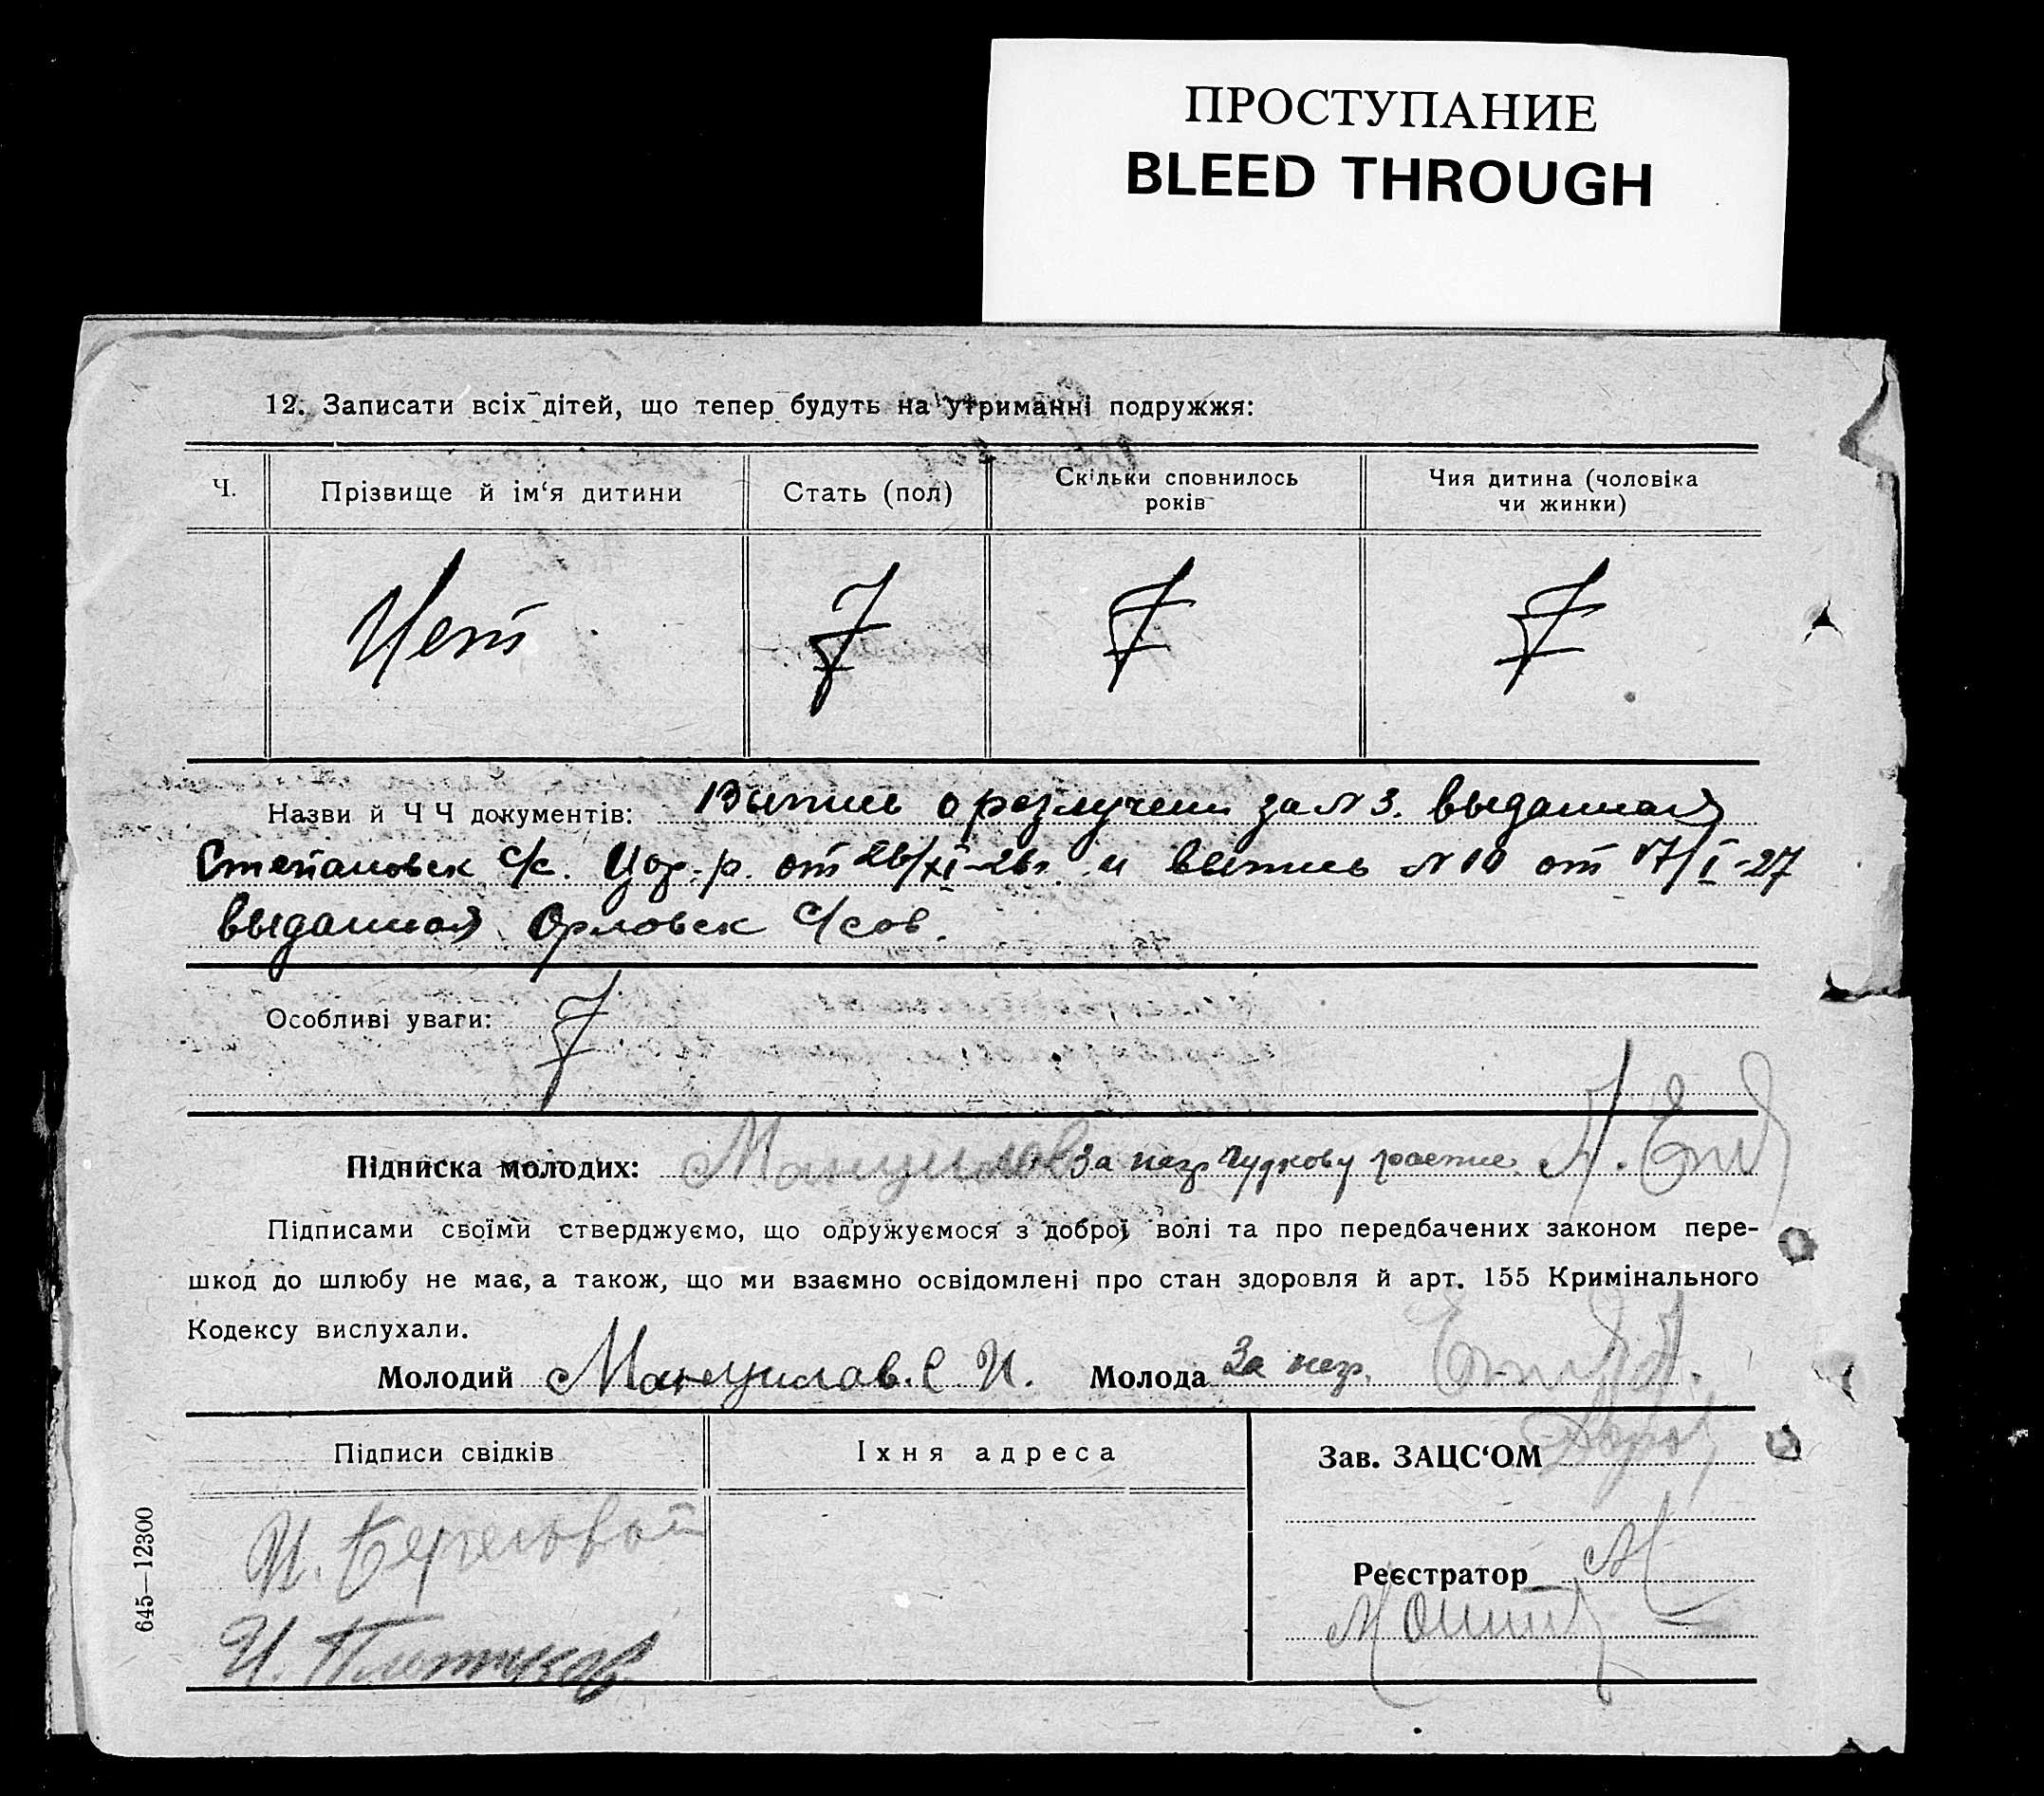 ПРОСТУПАНИЕ
BLEED THROUGH
12. Записати всіх дітей, що тепер будуть на утриманні подружжя:
Ч.
Прізвище й ім‘я дитини
Стать (пол)
Скільки сповнилось
років
Чия дитина (чоловіка
чи жинки)
Нет
Назви й Ч Ч документів: Випись о розлучени за № 3. выданная
Степановск с/с. р. от 26/XI-26г. и випись № 10 от 17/I-27
выданная Орловск с/сов.
Особливі уваги:
Підписка молодих: за негр роспис
Підписами своїми стверджуємо, що одружуємося з доброї волі та про передбачених законом пере-
шкод до шлюбу не має, а також, що ми взаємно освідомлені про стан здоровля й арт. 155 Кримінального
Кодексу вислухали.
Молодий И. Молода За негр.
Підписи свідків
Їхня адреса
Зав. ЗАЦС‘ОМ
И. Береговой
И. Плотников
Реєстратор
645—12300